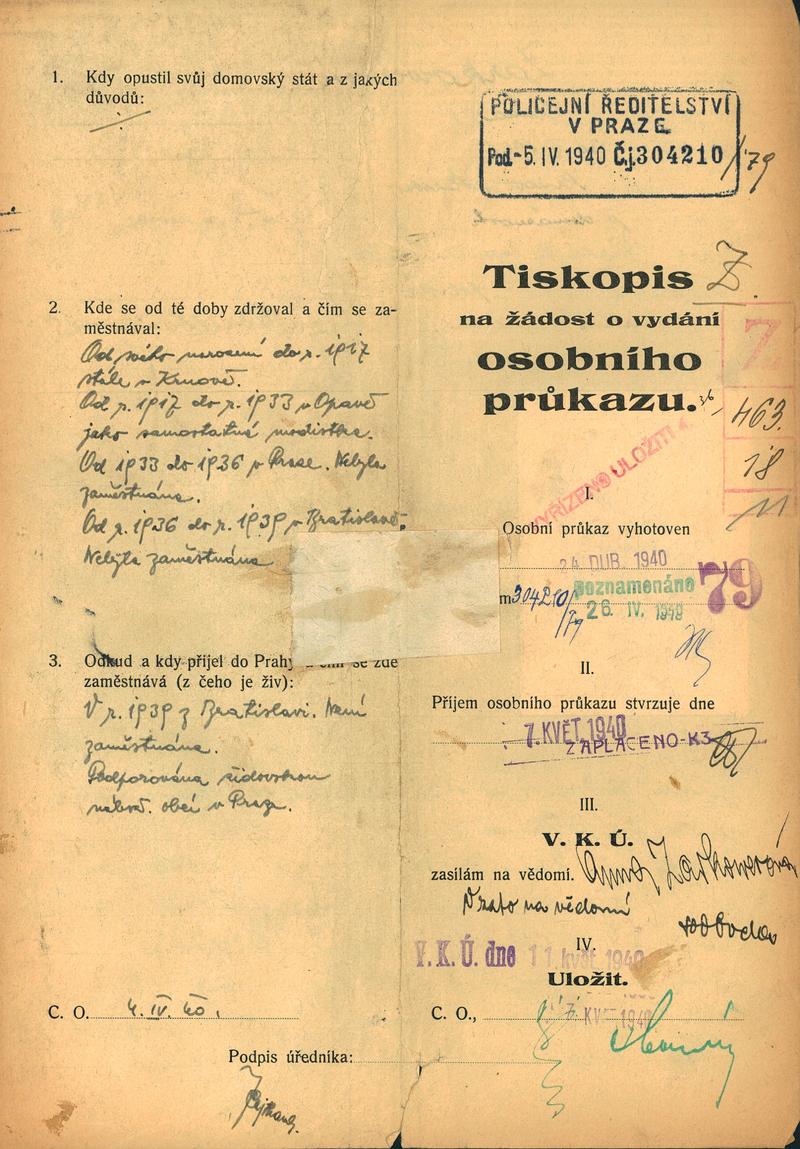 1. Kdy opustil svůj domovský stát a z jakých
důvodů:
2. Kde se od té doby zdržoval a čím se za-
městnával:
Od svého narození do r. 1917
stále v Krnově.
Od r. 1917 do r. 1933 v Opavě
jako samostatná modistka.
Od 1933 do 1936 v Praze. Nebyla
zaměstnána.
Od r. 1936 do r. 1939 v Bratislavě.
Nebyla zaměstnána
3. Odkud a kdy přijel do Prahy a čím se zde
zaměstnává (z čeho je živ):
V r. 1939 z Bratislavi. Není
zaměstnána.
Podporována židovskou
nábož. obcí v Praze.
C. O. 4. IV. 40.
Podpis úředníka:
POLICEJNÍ ŘEDITELSTVÍ
V PRAZE
Pod. -5. IV. 1940 Č.j. 304210/79
Tiskopis Ž
na žádost o vydání
osobního
průkazu.
7.
463
18
11
VYŘÍZENO ULOŽITI
I.
Osobní průkaz vyhotoven
24. DUB. 1940
304210/79
poznamenáno
26. IV. 1940
79
II.
Příjem osobního průkazu stvrzuje dne
7. KVĚT 1940
ZAPLACENO-K3
III.
V. K. Ú.
zasílám na vědomí.
Vzato na vědomí
IV.
V. K. Ú. dne 11. květ 1940
Uložit.
C. O.,
KVĚT 1940